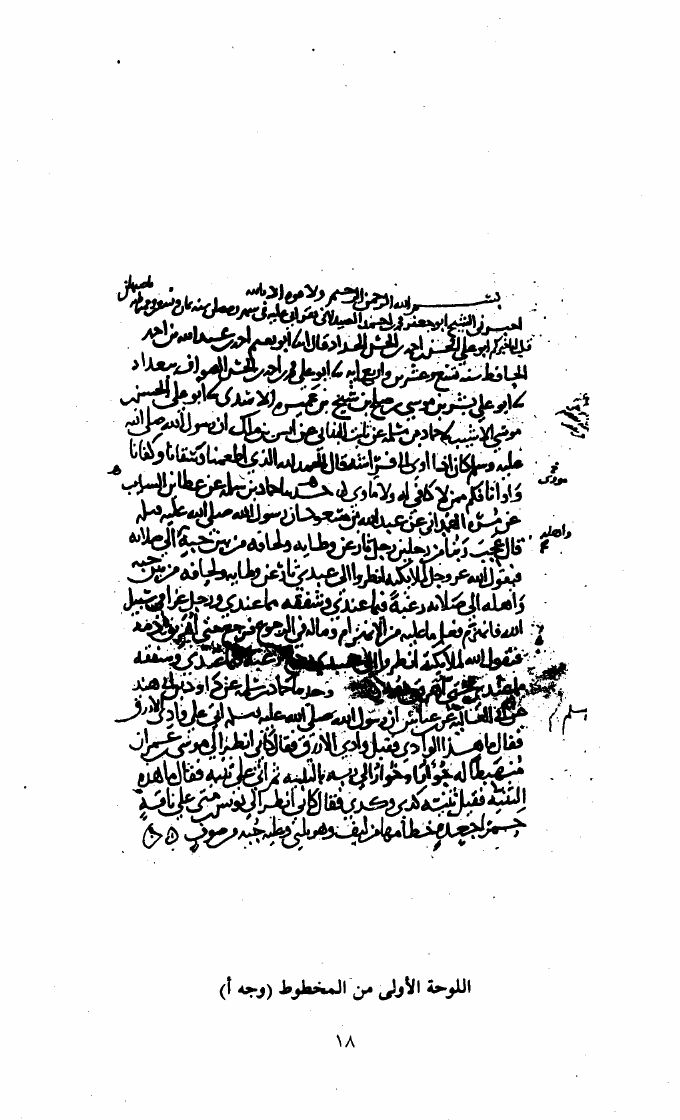 بسم الله الرحمن الرحيم ولا قوة الا بالله
اخبرني الشيخ ابو جعفر محمد بن احمد الصيدلاني
ابو علي الحسن بن احمد بن الحسن الحداد قال انا ابو نعيم احمد بن عبد الله بن احمد
الحافظ سنة تسع وعشرين واربعمائة ابو علي محمد بن احمد بن الحسن الصواف ببغداد
ابو علي بشر بن موسى بن صالح بن شيخ بن عميرة الاسدي ابو علي الحسن بن
موسى الاشيب حماد بن سلمة عن ثابت البناني عن انس بن مالك ان رسول الله صلى الله
عليه وسلم كان اذا اوى الى فراشه قال الحمد لله الذي اطعمنا وسقانا وكفانا
واوانا فكم ممن لا كافي له ولا ماوي له حماد بن سلمة عن عطا بن السايب
عن مرة الهمداني عن عبد الله بن مسعود ان رسول الله صلى الله عليه وسلم
قال عجب ربنا من رجلين رجل ثار عن وطايه ولحافه من بين حبه الى صلاته
فيقول الله عز وجل لملايكته انظروا الى عبدي ثار عن وطايه ولحافه من بين حبه
واهله الى صلاته رغبة فيما عندي وشفقه مما عندي ورجل غزا في سبيل
الله فانهزم فعلم ما عليه من الانهزام وماله في الرجوع فرجع حتى اهريق دمه
فيقول الله لملايكته انظروا الى عبدي رجع رغبة فيما عندي وشفقه
مما عندي حتى اهريق دمه وحدثنا حماد بن سلمة عن داود بن ابي هند
عن ابي العالية عن ابن عباس ان رسول الله صلى الله عليه وسلم اتى على وادي الازرق
فقال ما هذا الوادي فقيل وادي الازرق فقال كاني انظر الى موسى بن عمران
منهبطا له جؤار الى ربه بالتلبيه ثم اتى على ثنيه فقال ما هذه
الثنية فقيل ثنية كدى وكدى فقال كاني انظر الى يونس بن متى على ناقة
حمرا جعدة خطامها من ليف وهو يلبي وعليه جبه من صوف
اللوحة الأولى من المخطوط (وجه أ)
١٨